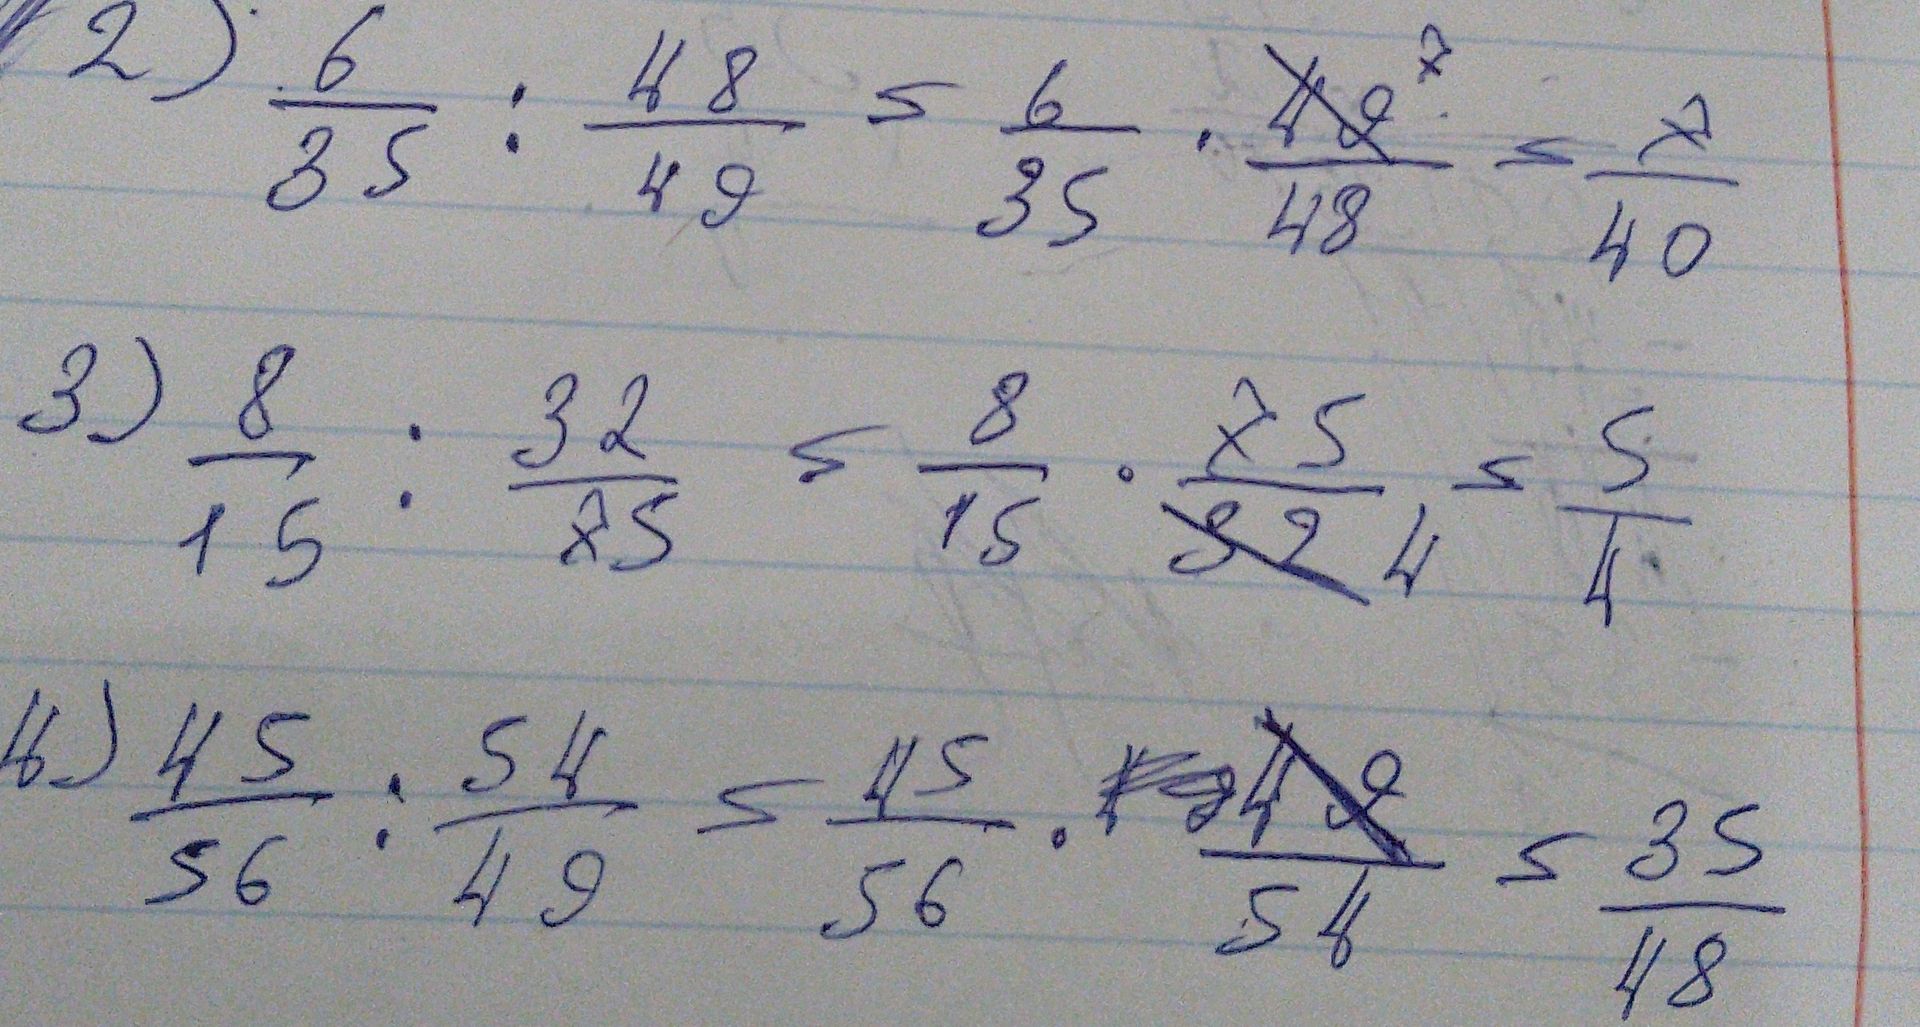 2) 6/35 : 48/49 = 6/35 · 49 7/48 = 7/40
3) 8/15 : 32/75 = 8/15 · 75/32 4 = 5/4
4) 45/56 : 54/49 = 45/56 · 49/54 = 35/48